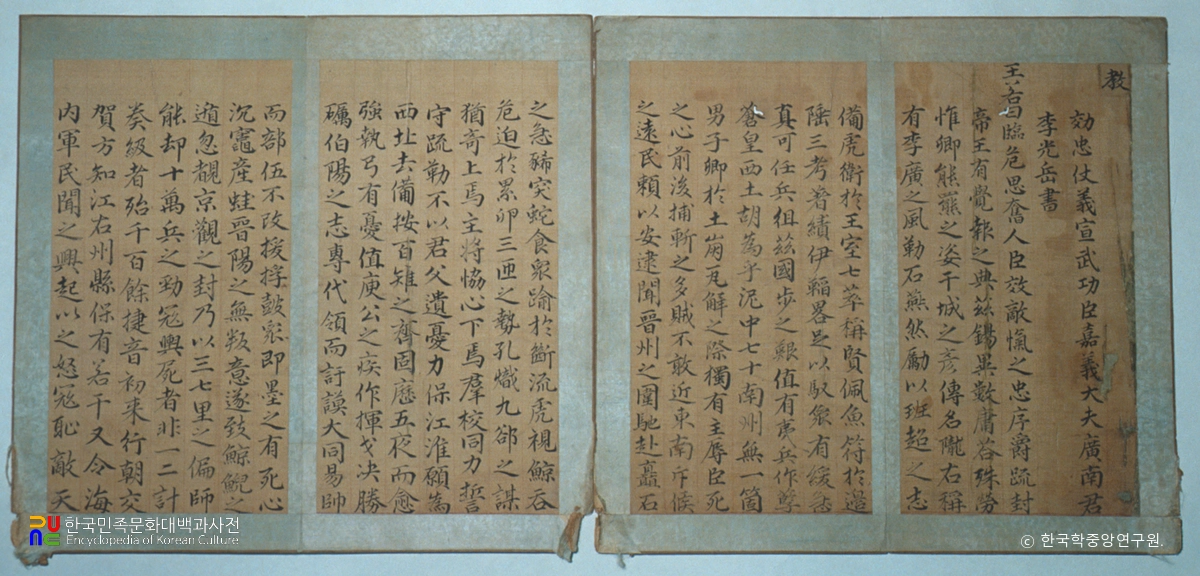 教
効忠仗義宣武功臣嘉義大夫廣南君
李光岳書
王若曰臨危思奮人臣效敵愾之忠序爵疏封
帝王有覺報之典茲錫異數庸答殊勞
惟卿熊羆之姿干城之彦傳名隴右稱
有李廣之風勒石燕然勵以班超之志
備虎衛於王室七萃稱賢佩魚符於邊
陲三考著績伊韜畧足以馭衆有緩急
真可任兵徂茲國步之艱值有夷兵作孽
蒼皇西土胡為乎泥中七十南州無一箇
男子卿於土崩瓦解之際獨有主辱臣死
之心前後捕斬之多賊不敢近東南斥候
之遠民賴以安逮聞晋州之圍馳赴矗石
之急豨突蛇食衆踰於斷流虎視鯨呑
危迫於累卵三匝之勢孔熾九郤之謀
猶奇上焉主將恊心下焉羣校同力誓
守疏勒不以君父遺憂力保江淮願為
西北去備按百雉之齊固歷五夜而愈
強執弓有憂值庾公之疾作揮戈决勝
礪伯陽之志專代領而訏謨大同易帥
而部伍不改援桴皷衆即墨之有死心
沉竈産蛙晋陽之無叛意遂致鯨鯢之
遁忽覩京觀之封乃以三七里之偏師
能却十萬兵之勁冦輿死者非一二計
奏級者殆千百餘捷音初来行朝交
賀方知江右州縣保有若干又令海
内軍民聞之興起以之怒冦耻敵天
한국민족문화대백과사전
Encyclopedia of Korean Culture
ⓒ 한국학중앙연구원.